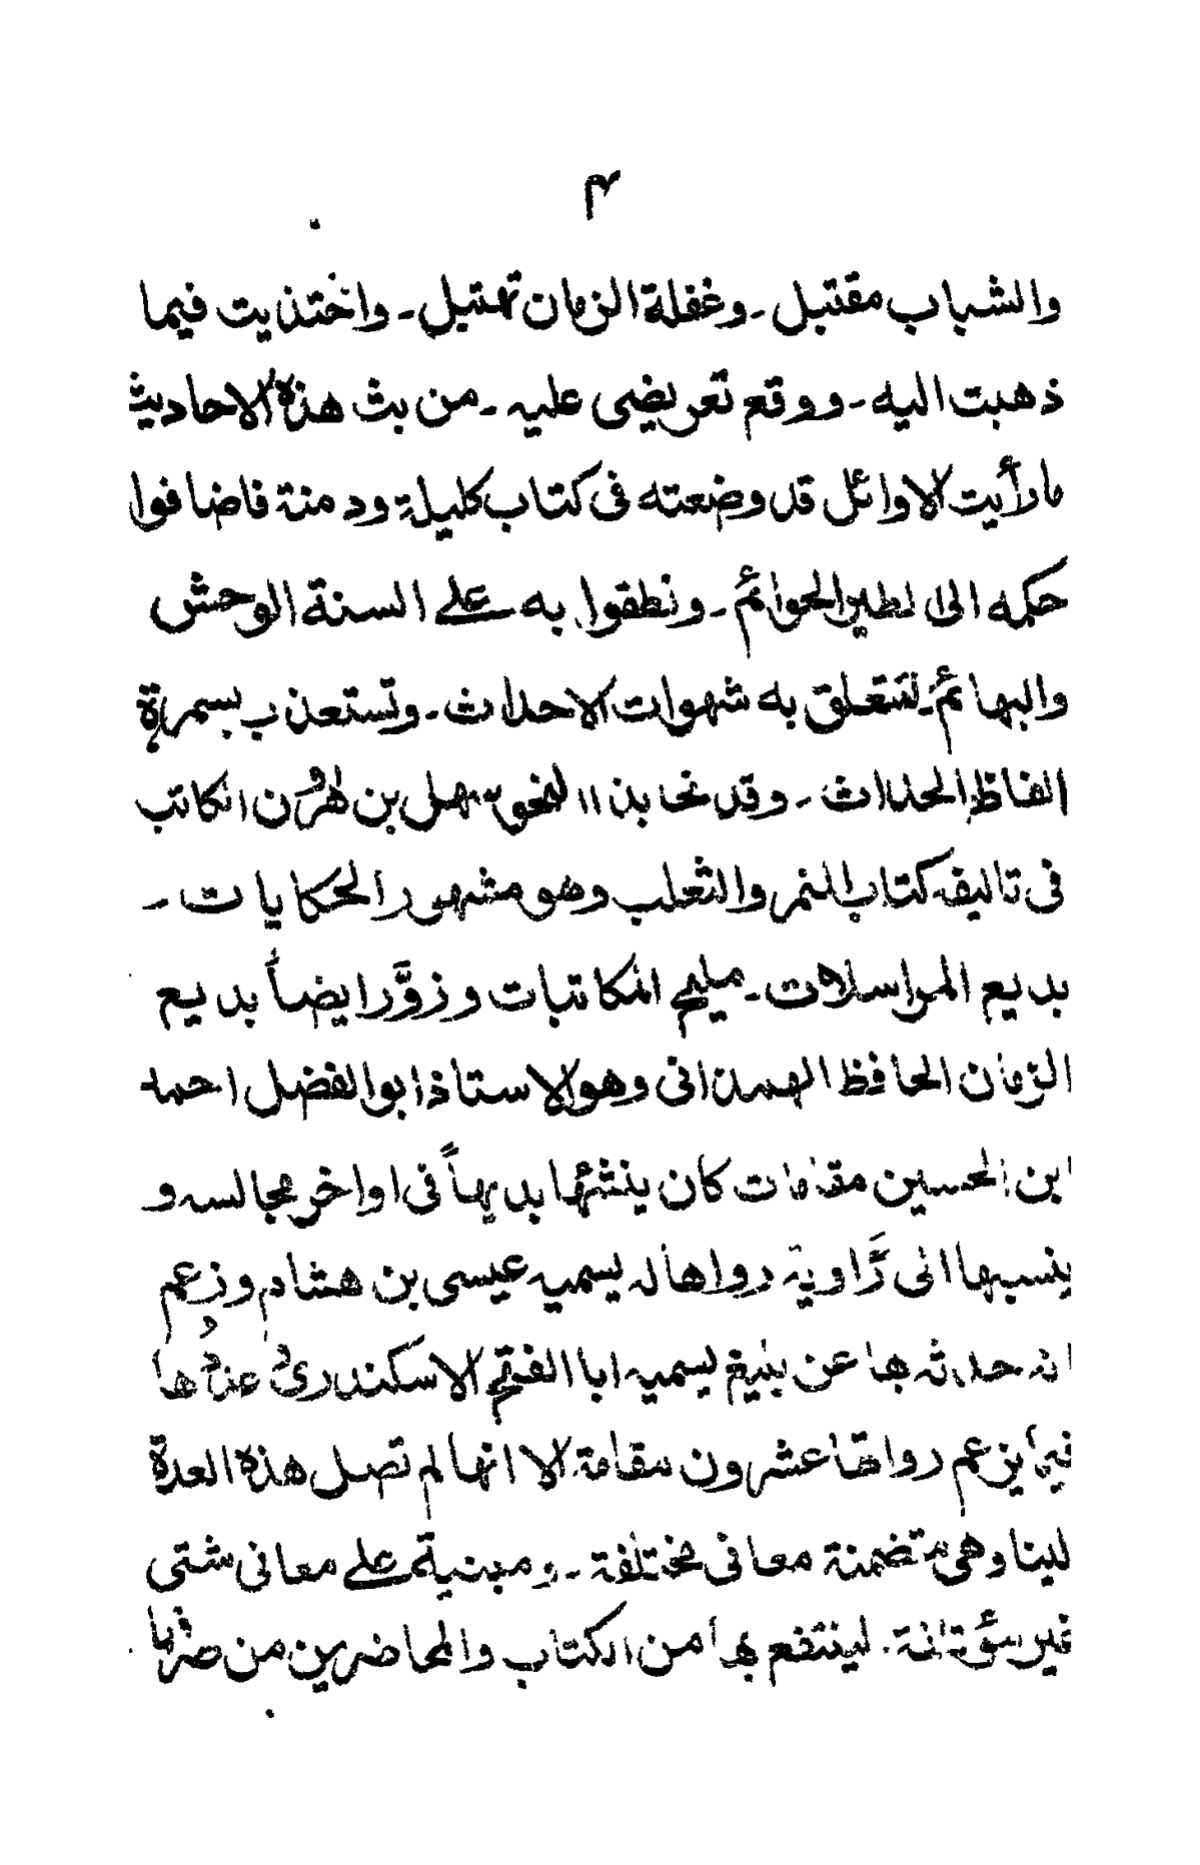 ۴
والشباب مقتبل ـ وغفلة الزمان تهتبل ـ واختذيت فيما
ذهبت اليه ـ ووقع تعريضى عليه ـ من بث هذه الاحاديث
ما رأيت الاوائل قد وضعته فى كتاب كليلة ودمنة فاضافوا
حكمه الى لطير الحوائم ـ ونطقوا به علے السنة الوحش
والبهائم ـ لتتعلق به شهوات الاحداث ـ وتستعذب بسمرة
الفاظ الحداث ـ وقد نحا بذا النحو سهل بن هٰرُون الكاتب
فى تاليفه كتاب النمر والثعلب وهو مشهور الحكايات ـ
بديع المراسلات ـ مليح المكاتبات وزوَّر ايضاً بديع
الزمان الحافظ الهمدانى وهو الاستاذ ابو الفضل احمد
ابن الحسين مقامات كان ينشئها بديهاً فى اواخر مجالسه و
ينسبها الى رَّاوية رواها له يسميه عيسى بن هشام وزعم
انه حدثه بها عن بليغ يسميه ابا الفتح الاسكندرى عددها
فيما يزعم رواتها عشرون مقامة الا انها لم تصل هذه العدة
لينا وهى متضمنة معانى مختلفة ـ ومبنية علے معانى شتى
غير مؤتلفة ـ لينتفع بها من الكتاب والمحاضرين من صرفها